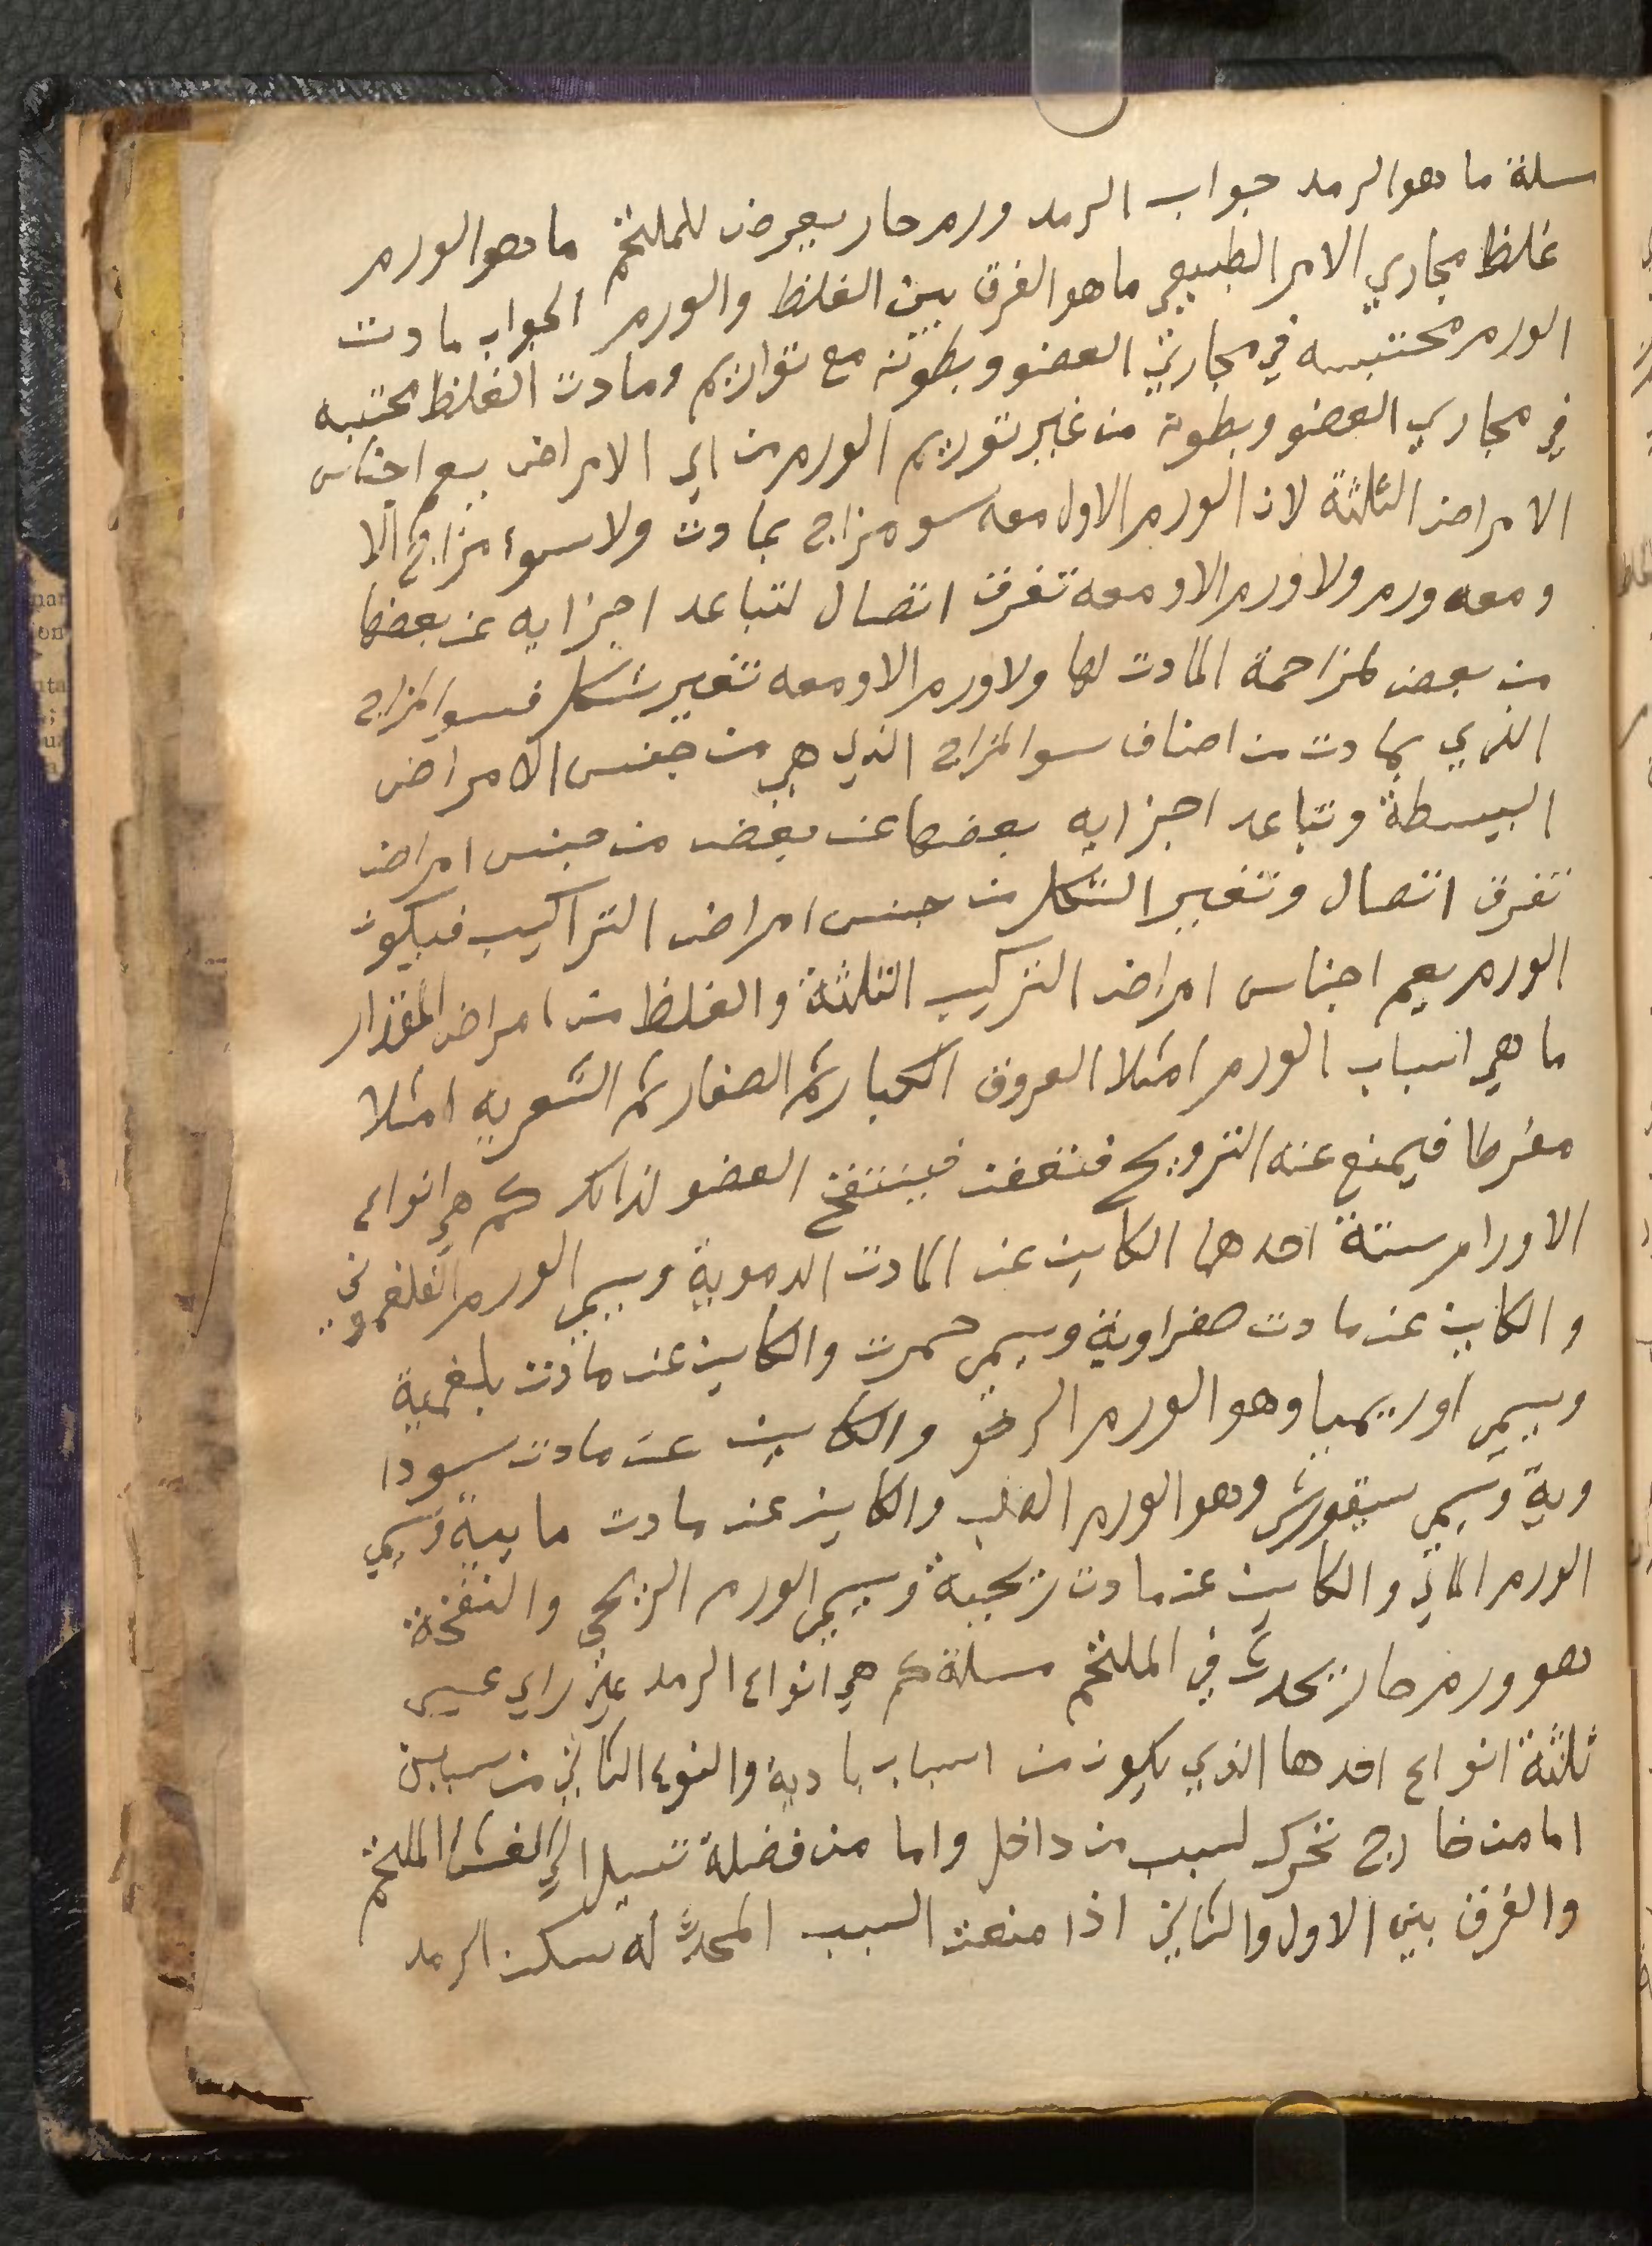 سلة ما هو الرمد جواب الرمد ورم حار يعرض للملتحم ما هو الورم
غلظ مجاري الامر الطبيعي ما هو الفرق بين الغلظ والورم الجواب مادت
الورم محتبسه في مجاري العضو وبطونه مع توازيم ومادت الغلظ محتبه
في مجاري العضو وبطونه من غير توريم الورم من اي الامراض يعم اجناس
الامراض الثلثة لان الورم الاول معه سو مزاج بمادت ولا سوء مزاج الا
ومعه ورم ولا ورم الا ومعه تفرق اتصال لتباعد اجزايه عن بعضها
من بعض لمزاحمة المادت لها ولا ورم الا ومعه تغير شكل فسو المزاج
الذي بمادت من اصناف سو المزاج الذي هي من جنس الامراض
البسيطة وتباعد اجزايه بعضها عن بعض من جنس امراض
تفرق اتصال وتغير الشكل من جنس امراض التراكيب فيكون
الورم يعم اجناس امراض التركيب الثلثة والغلظ من امراض المقدار
ما هي اسباب الورم امتلا العروق الكبار ثم الصغار ثم الشعريه امتلا
مفرطا فيمنع عنه الترويح فتعفن فينتفخ العضو لذالك كم هي انواع
الاورام ستة احدها الكاين عن المادت الدموية ويسمى الورم الفلغموني
والكاين عن مادت صفراوية ويسمى حمرت والكاين عن مادت بلغمية
ويسمى اوريميا وهو الورم الرخو والكاين عن مادت سودا
وية ويسمى سيقورش وهو الورم الصلب والكاين عن مادت مايية ويسمى
الورم المائي والكاين عن مادت ريحية ويسمى الورم الريحي والنفخة
هو ورم حار يحدث في الملتحم مسلة كم هي انواع الرمد على راي عيسى
ثلثة انواع احدها الذي يكون من اسباب بادية والنوع الثاني من سببين
اما من خارج تحرك لسبب من داخل واما من فضلة تسيل الى الغشا الملتحم
والفرق بين الاول والثاني اذا منعت السبب المحدث له سكن الرمد